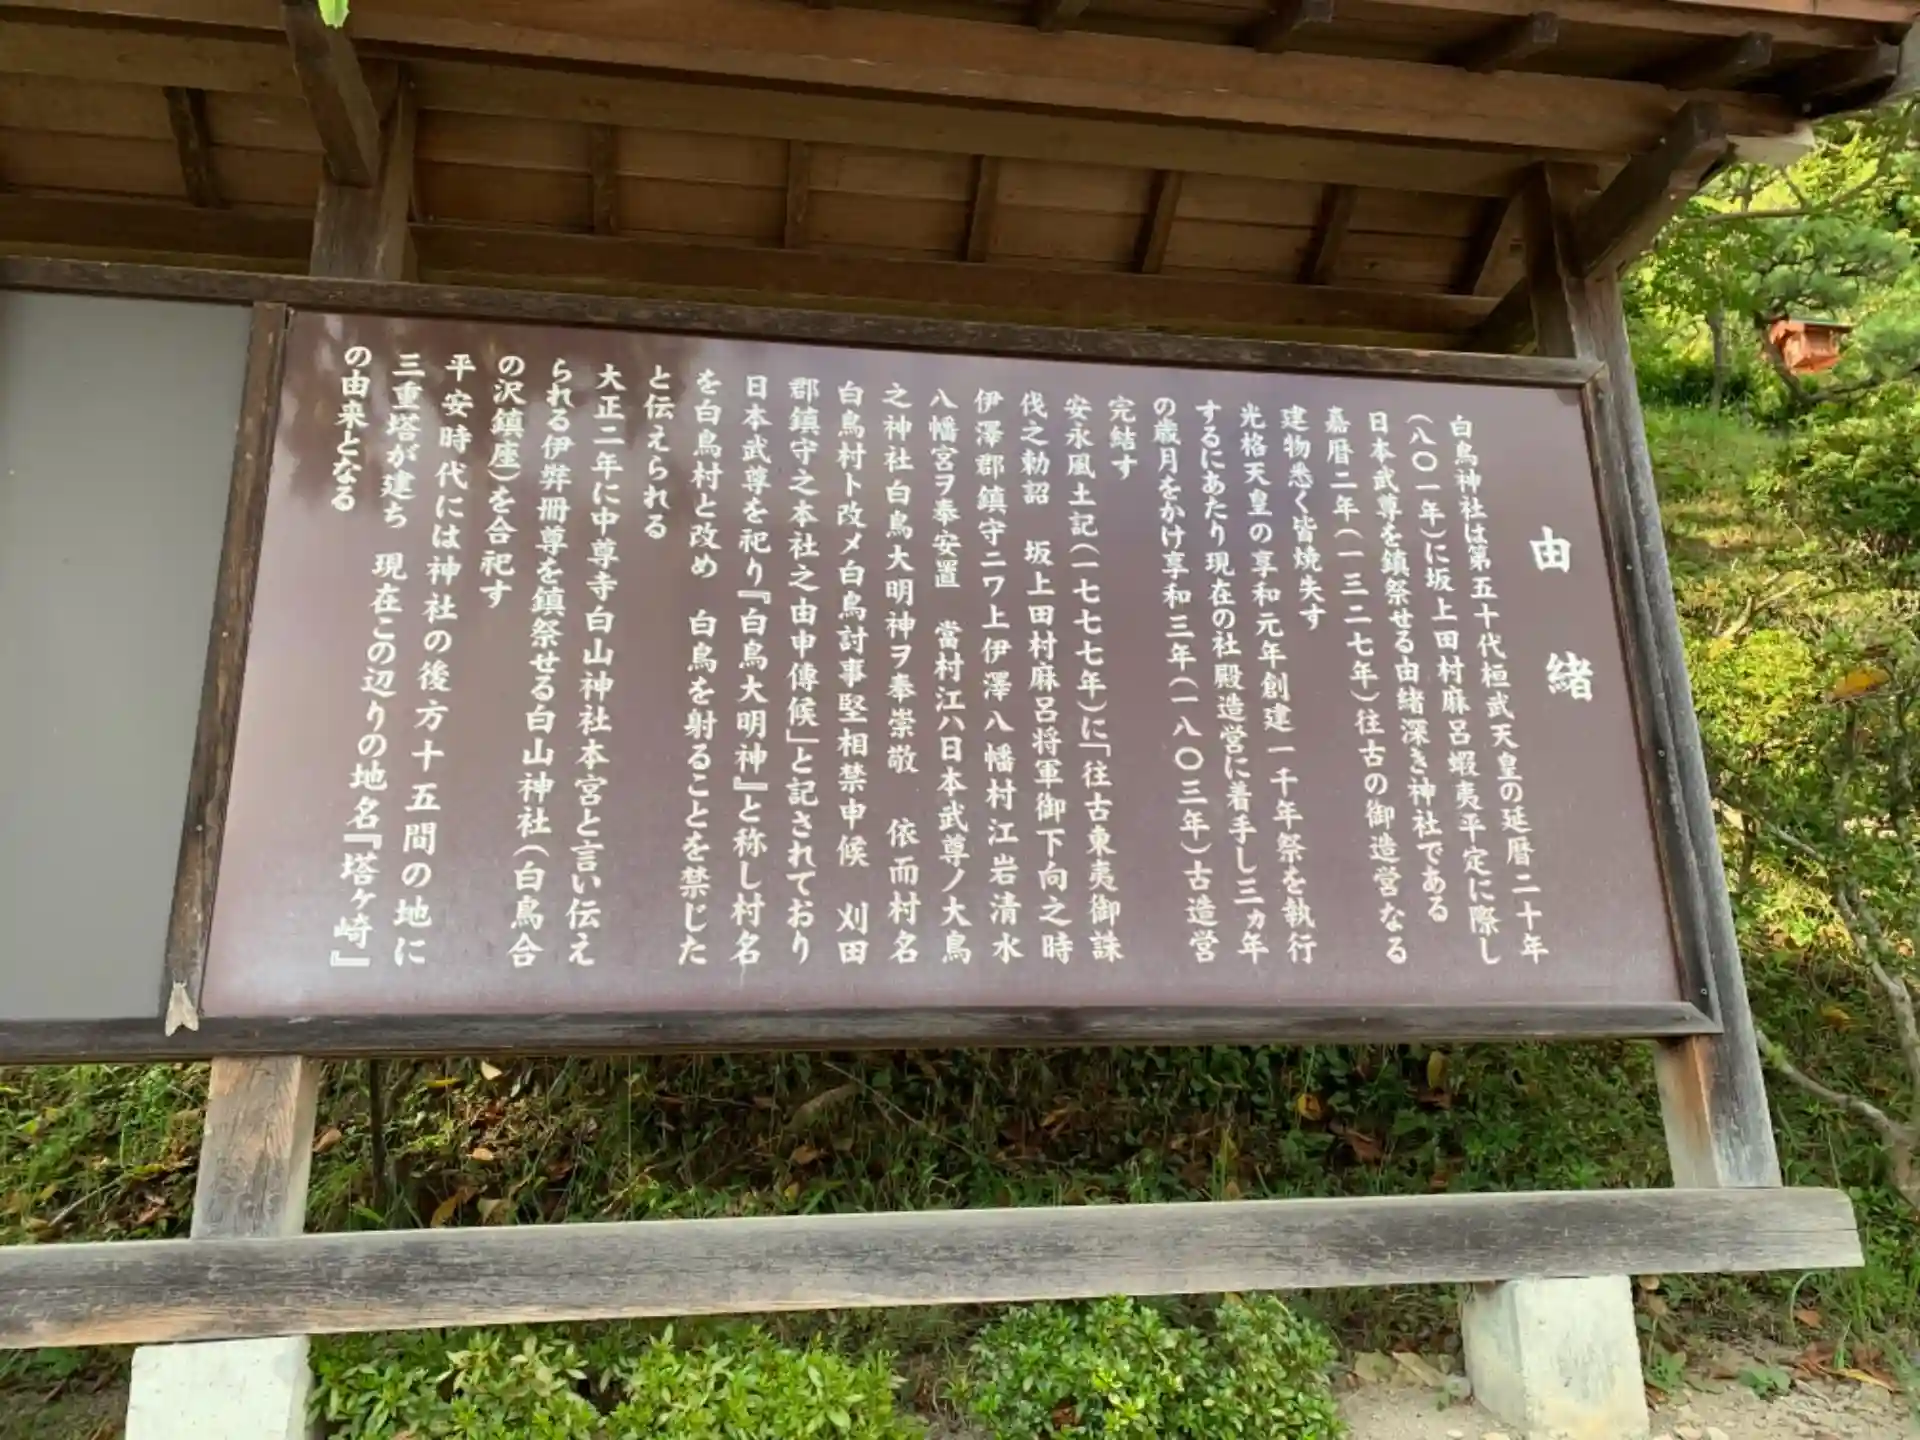 由緒
白鳥神社は第五十代桓武天皇の延暦二十年
(八〇一年)に坂上田村麻呂蝦夷平定に際し
日本武尊を鎮祭せる由緒深き神社である
嘉暦二年(一三二七年)往古の御造営なる
建物悉く皆焼失す
光格天皇の享和元年創建一千年祭を執行
するにあたり現在の社殿造営に着手し三ヵ年
の歳月をかけ享和三年(一八〇三年)古造営
完結す
安永風土記(一七七七年)に「往古東夷御誅
伐之勅詔 坂上田村麻呂将軍御下向之時
伊澤郡鎮守ニワ上伊澤八幡村江岩清水
八幡宮ヲ奉安置 當村江ハ日本武尊ノ大鳥
之神社白鳥大明神ヲ奉崇敬 依而村名
白鳥村ト改メ白鳥討事堅相禁申候 刈田
郡鎮守之本社之由申傳候」と記されており
日本武尊を祀り『白鳥大明神』と称し村名
を白鳥村と改め 白鳥を射ることを禁じた
と伝えられる
大正二年に中尊寺白山神社本宮と言い伝え
られる伊弉冊尊を鎮祭せる白山神社(白鳥合
の沢鎮座)を合祀す
平安時代には神社の後方十五間の地に
三重塔が建ち 現在この辺りの地名『塔ヶ崎』
の由来となる